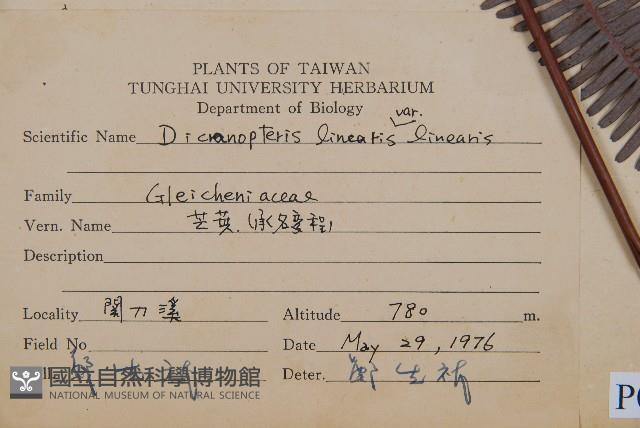 PLANTS OF TAIWAN
TUNGHAI UNIVERSITY HERBARIUM
Department of Biology
Scientific Name Dicranopteris linearis var. linearis
Family Gleicheniaceae
Vern. Name 芒萁
Description
Locality 關刀溪
Altitude 780 m.
Field No
Date May 29, 1976
Deter.
國立自然科學博物館
NATIONAL MUSEUM OF NATURAL SCIENCE